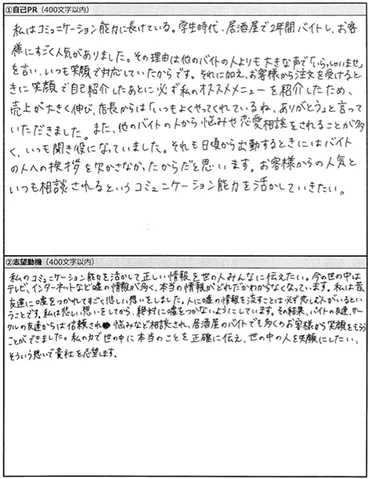 ①自己PR (400文字以内)
私はコミュニケーション能力に長けている。学生時代、居酒屋で2年間バイトし、お客
様にすごく人気がありました。その理由は他のバイトの人よりも大きな声で「いらっしゃいませ」
を言い、いつも笑顔で対応していたからです。それに加え、お客様から注文を受けるとき
に笑顔で自己紹介したあとに必ず私のオススメメニューを紹介したため、
売上が大きく伸び、店長からは「いつもよくやってくれているね。ありがとう」と言って
いただきました。また、他のバイトの人から悩みや恋愛相談をされることが多
く、いつも聞き役になっていました。それも日頃から出勤するときにはバイト
の人への挨拶を欠かさなかったからだと思います。お客様からの人気と
いつも相談されるというコミュニケーション能力を活かしていきたい。
②志望動機 (400文字以内)
私のコミュニケーション能力を活かして正しい情報を世の人みんなに伝えたい。今の世の中は
テレビ、インターネットなど嘘の情報が多く、本当の情報がどれだかわからなくなっています。私は昔、
友達に嘘をつかれてすごく悲しい思いをしました。人に嘘の情報を流すことは必ず悲しむ人がいるとい
うことです。私は悲しい思いをしてから、絶対に嘘をつかないようにしています。その結果、バイトの友達、サー
クルの友達からは信頼され悩みなど相談され、居酒屋のバイトでも多くのお客様から笑顔をもらう
ことができました。私の力で世の中に本当のことを正確に伝え、世の中の人を笑顔にしたい、
そういう思いで貴社を志望します。